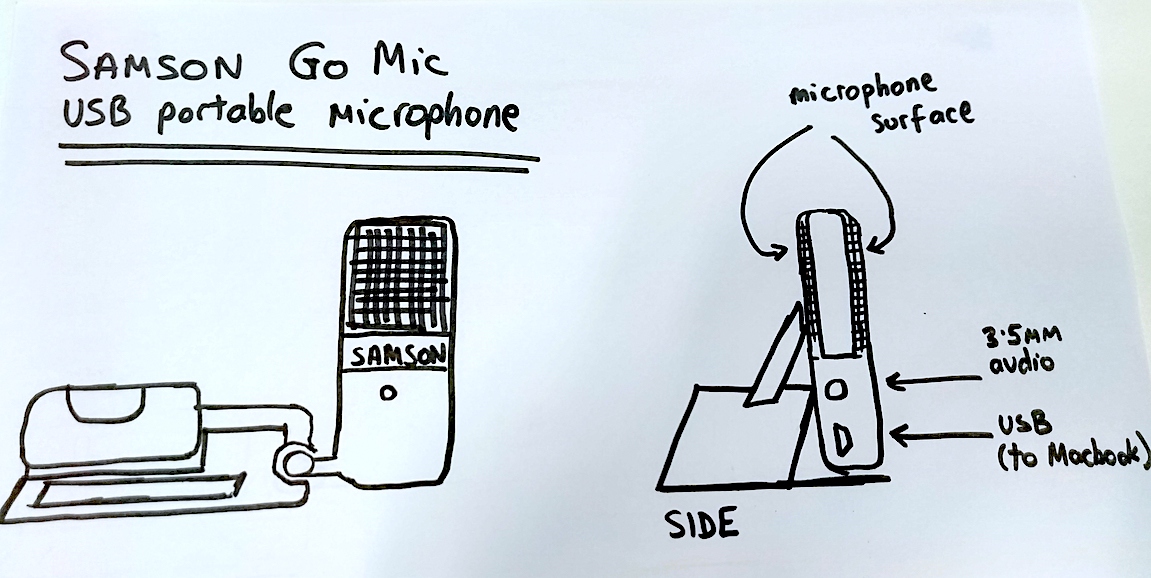 SAMSON Go Mic
USB portable Microphone
microphone
surface
SAMSON
3.5MM
audio
USB
(to Macbook)
SIDE